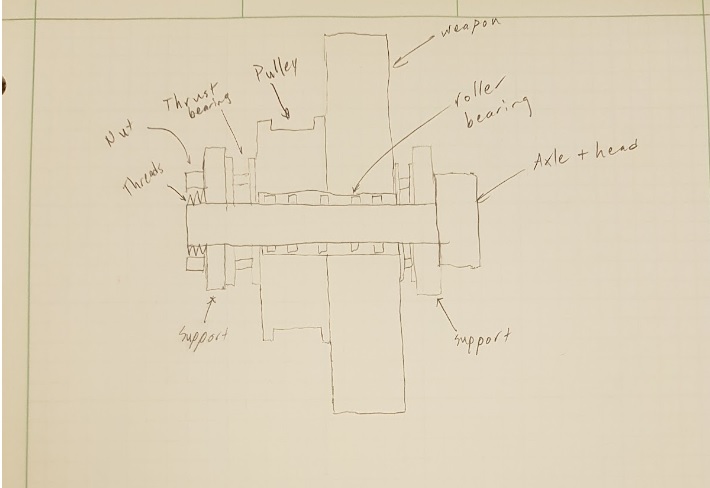 weapon
Pulley
Thrust
bearing
roller
bearing
Nut
Threads
Axle + head
Support
Support